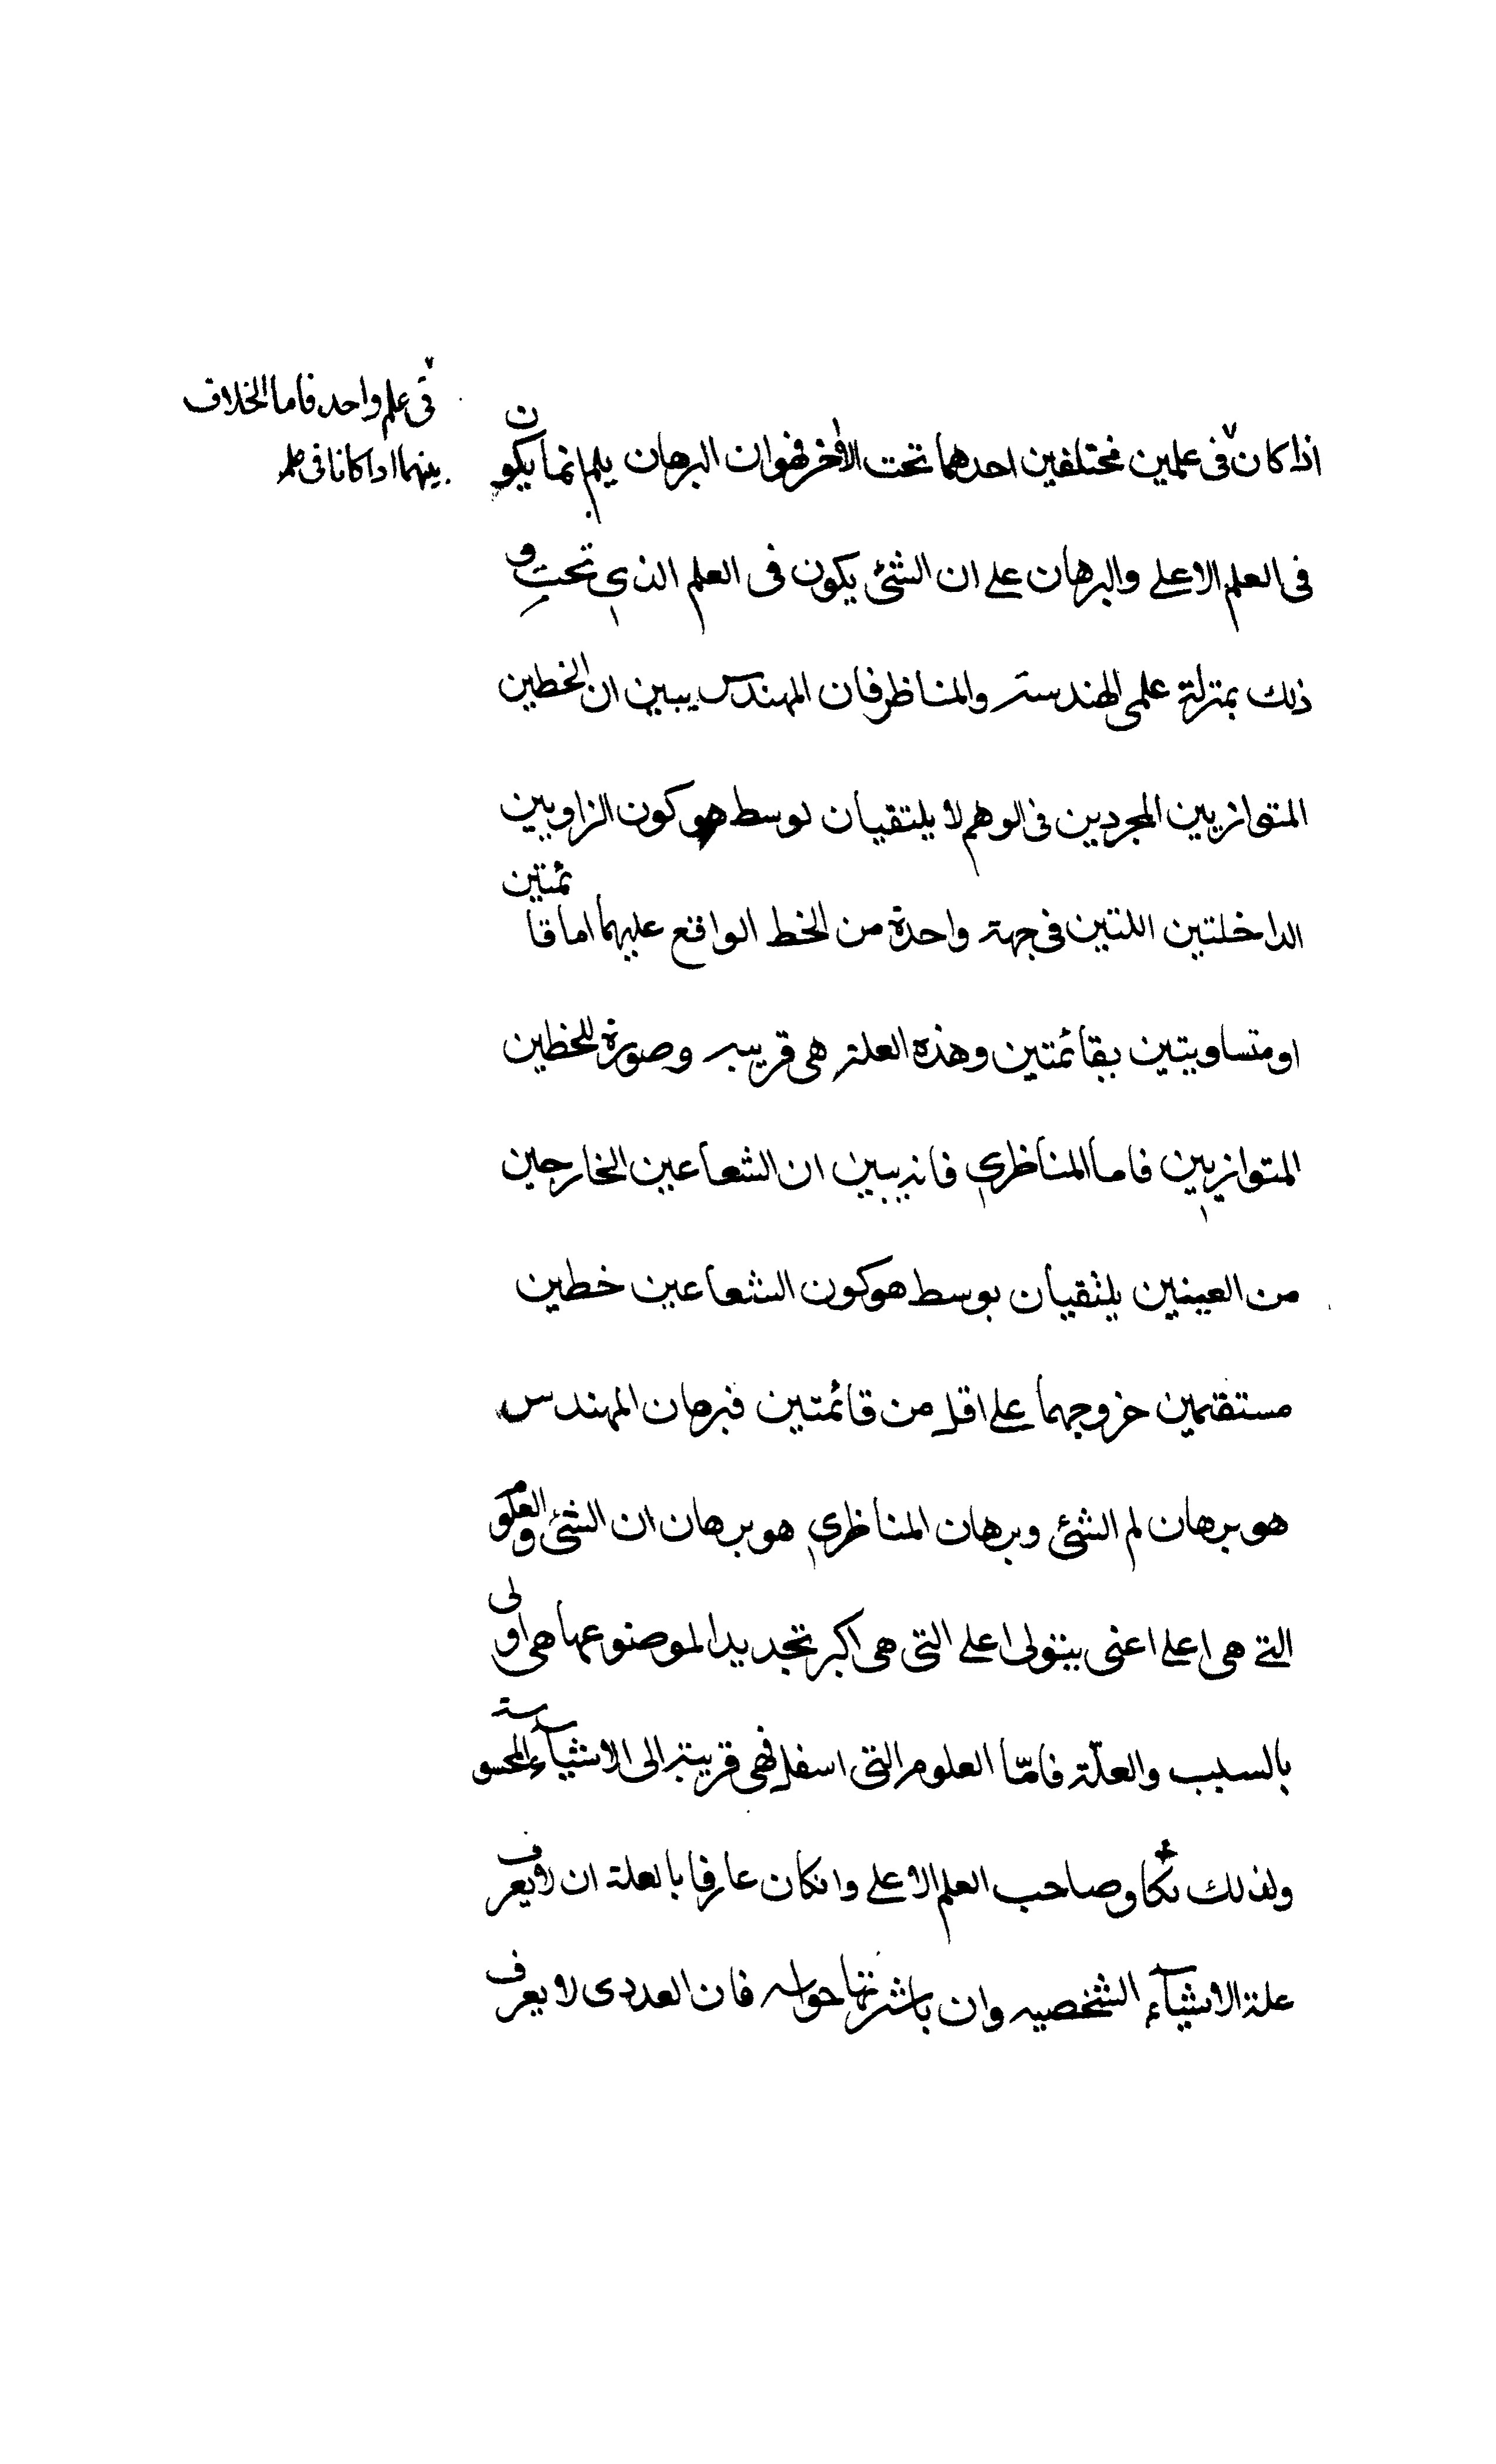 فى علم واحد فاما الخلاف
بينهما اذا كانا فى علم
اذا كان فى علمين مختلفين احدهما تحت الاخر فهو ان البرهان بلم انما يكون
فى العلم الاعلى والبرهان على ان الشئ يكون فى العلم الذى تحت و
ذلك بمنزلة علمى الهندسة والمناظر فان المهندس يبين ان الخطين
المتوازيين المجردين فى الوهم لا يلتقيان بوسط هو كون الزاويين
الداخلتين اللتين فى جهة واحدة من الخط الواقع عليهما اما قائمتين
او متساويتين بقائمتين وهذه العلة هى قريبه وصورة للخطين
المتوازيين فاما المناظرى فانه يبين ان الشعاعين الخارجين
من العينين يلتقيان بوسط هو كون الشعاعين خطين
مستقيمين خروجهما على اقل من قائمتين فبرهان المهندس
هو برهان لم الشئ وبرهان المناظرى هو برهان ان الشئ والعلوم
التى هى اعلى اعنى بقولى اعلى التى هى اكبر تجديدا لموضوعها هى اولى
بالسبب والعلّة فامّا العلوم التى اسفل فهى قريبة الى الاشياء المحسوسة
ولذلك صاحب العلم الاعلى وانكان عارفا بالعلة ان لا يعرف
علة الاشياء الشخصيه وان باشرتها حواسه فان العددى لا يعرف